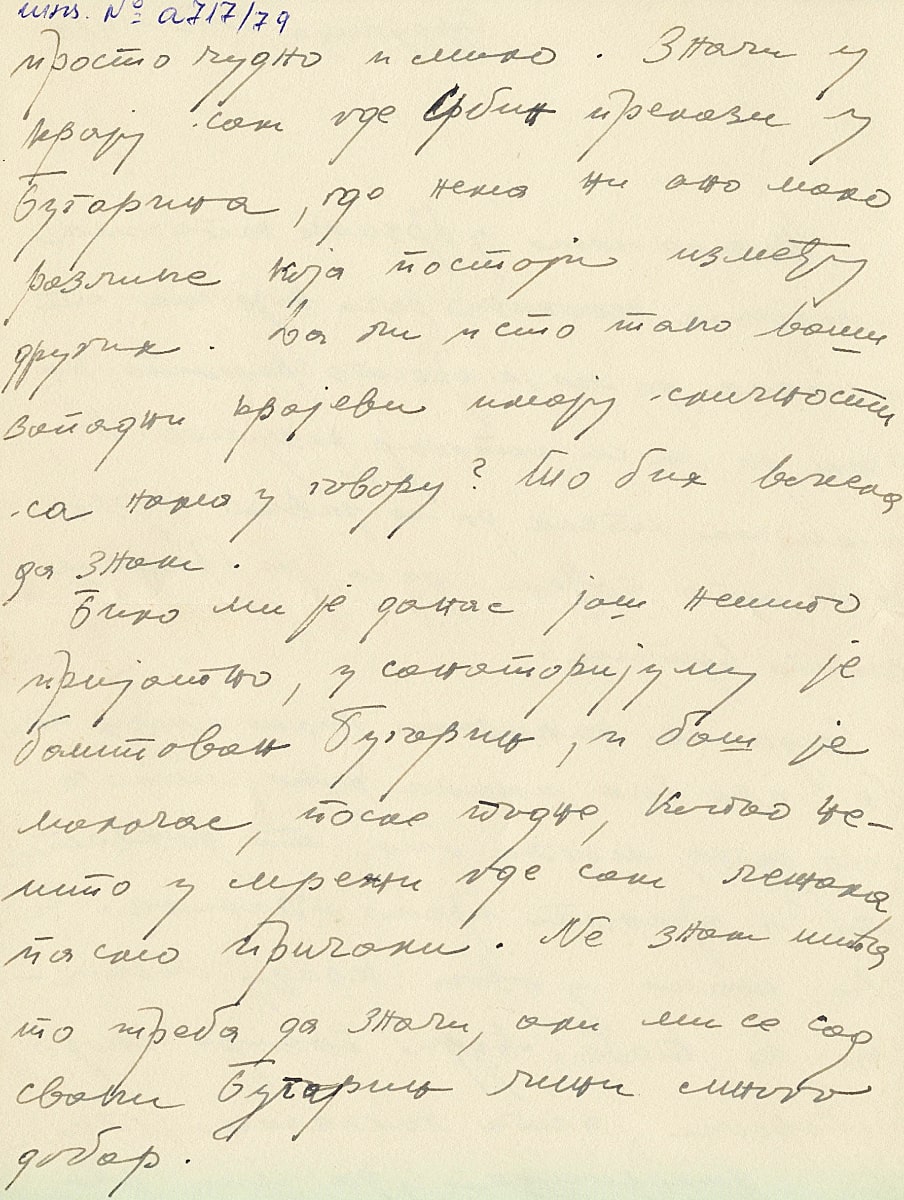 инв. № а717/79
просто чудно и мило. Значи у
крају сам где Србин прелази у
Бугарина, где нема ни оно мало
разлике која постоји између
других. Да ли исто тако ваши
западни крајеви имају сличности
са нама у говору? То бих волела
да знам.
Било ми је данас још нешто
пријатно, у санаторијуму је
баштован Бугарин, и баш је
малочас, после подне, копао не-
што у мрежи где сам лежала,
па смо причали. Не знам шта
то треба да значи, али ми се сад
сваки Бугарин чини много
добар.